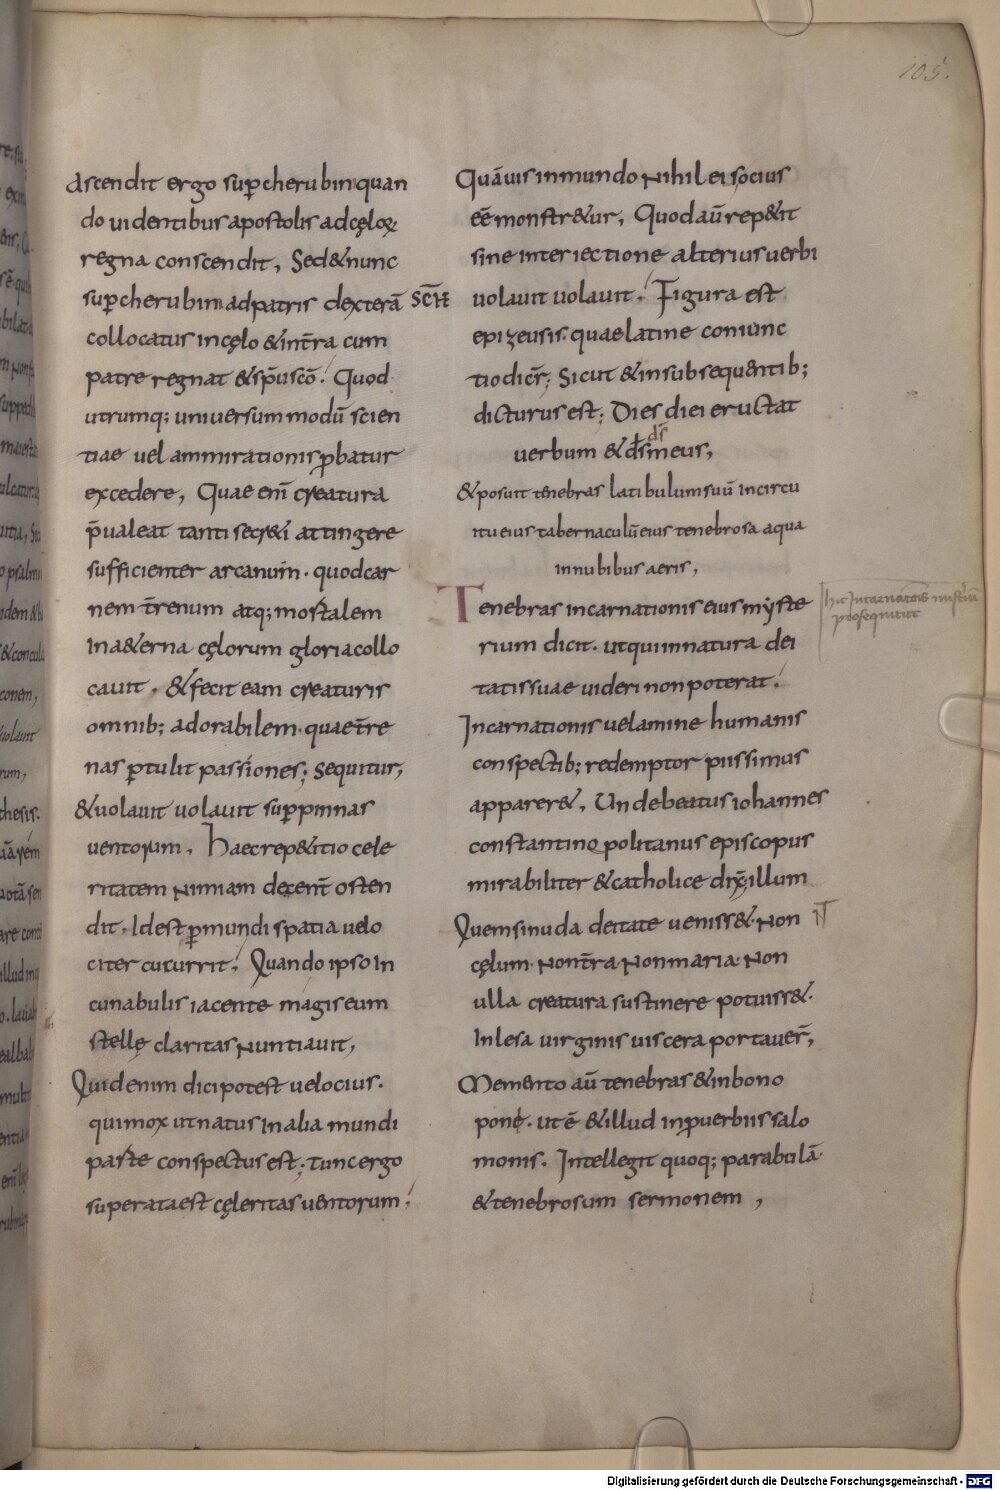 105.
Ascendit ergo sup̱ cherubin quan
do uidentibus apostolis ad cęloꝝ
regna conscendit, Sed & nunc
sup̱ cherubin ad patris dexterā SC̄N̄
collocatus in cęlo & int̄ra cum
patre regnat & sp̄u sc̄o. Quod
utrumq; uniuersum modū scien
tiae uel ammirationis ꝓbatur
excedere, Quae eni̅ creatura
p̄ualeat tanti secr&i attingere
sufficienter arcanum · quod car
nem t̄renum atq; mortalem
In a&erna cęlorum gloria collo
cauit · & fecit eam creaturis
omnib; adorabilem · quae t̄re
nas ꝑtulit passiones; Sequitur,
& uolauit uolauit sup̱ pinnas
uentorum, Haec rep&itio cele
ritatem nimiam decent̄ osten
dit. Id est ꝑ mundi spatia uelo
citer cucurrit. Quando ipso In
cunabulis iacente magis eum
stellę claritas nuntiauit,
Quid enim dici potest uelocius.
qui mox ut natus In alia mundi
parte conspectus est; tunc ergo
superata est cęleritas uentorum.
Quāuis in mundo nihil ei socius
eē monstr&ur, Quod aū rep&it
sine interiectione alterius uerbi
uolauit uolauit. Figura est
epizeusis. quae latine coniunc
tio dicit̄; Sicut & in subsequentib;
dicturus est; Dies diei eructat
uerbum & d̄s d̄s meus,
& posuit tenebras latibulum suū in circu
itu eius tabernaculū eius tenebrosa aqua
in nubibus aeris,
Tenebras incarnationis eius myste
rium dicit. ut qui in natura dei
tatis suae uideri non poterat.
Incarnationis uelamine humanis
conspectib; redemptor piissimus
apparer&, Unde beatus iohannes
constantinopolitanus episcopus
mirabiliter & catholice dix̄; illum
Quem si nuda deitate ueniss& · Non N̄T
cęlum · Non t̄ra · Non maria · Non
ulla creatura sustinere potuiss& ·
Inlesa uirginis uiscera portauer̄,
Memento aū tenebras & in bono
poné · ut ē & illud in ꝓuerbiis salo
monis. Intellegit quoq; parabulā
& tenebrosum sermonem,
hic Incarnatōis mist'iū
prosequitur
Digitalisierung gefördert durch die Deutsche Forschungsgemeinschaft - DFG